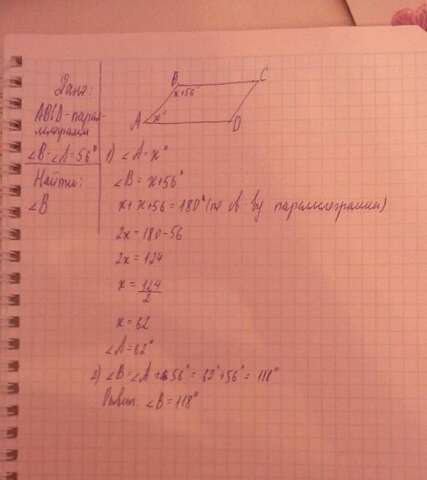 Дано:
ABCD-парал-
лелограмм
∠B-∠A=56°
Найти:
∠B
B
C
x+56
A
x°
D
1) ∠A-x°
∠B=x+56°
x+x+56=180°(по
параллелограмма)
2x=180-56
2x=124
x=124/2
x=62
∠A=62°
2) ∠B=∠A+56°=62°+56°=118°
∠B=118°